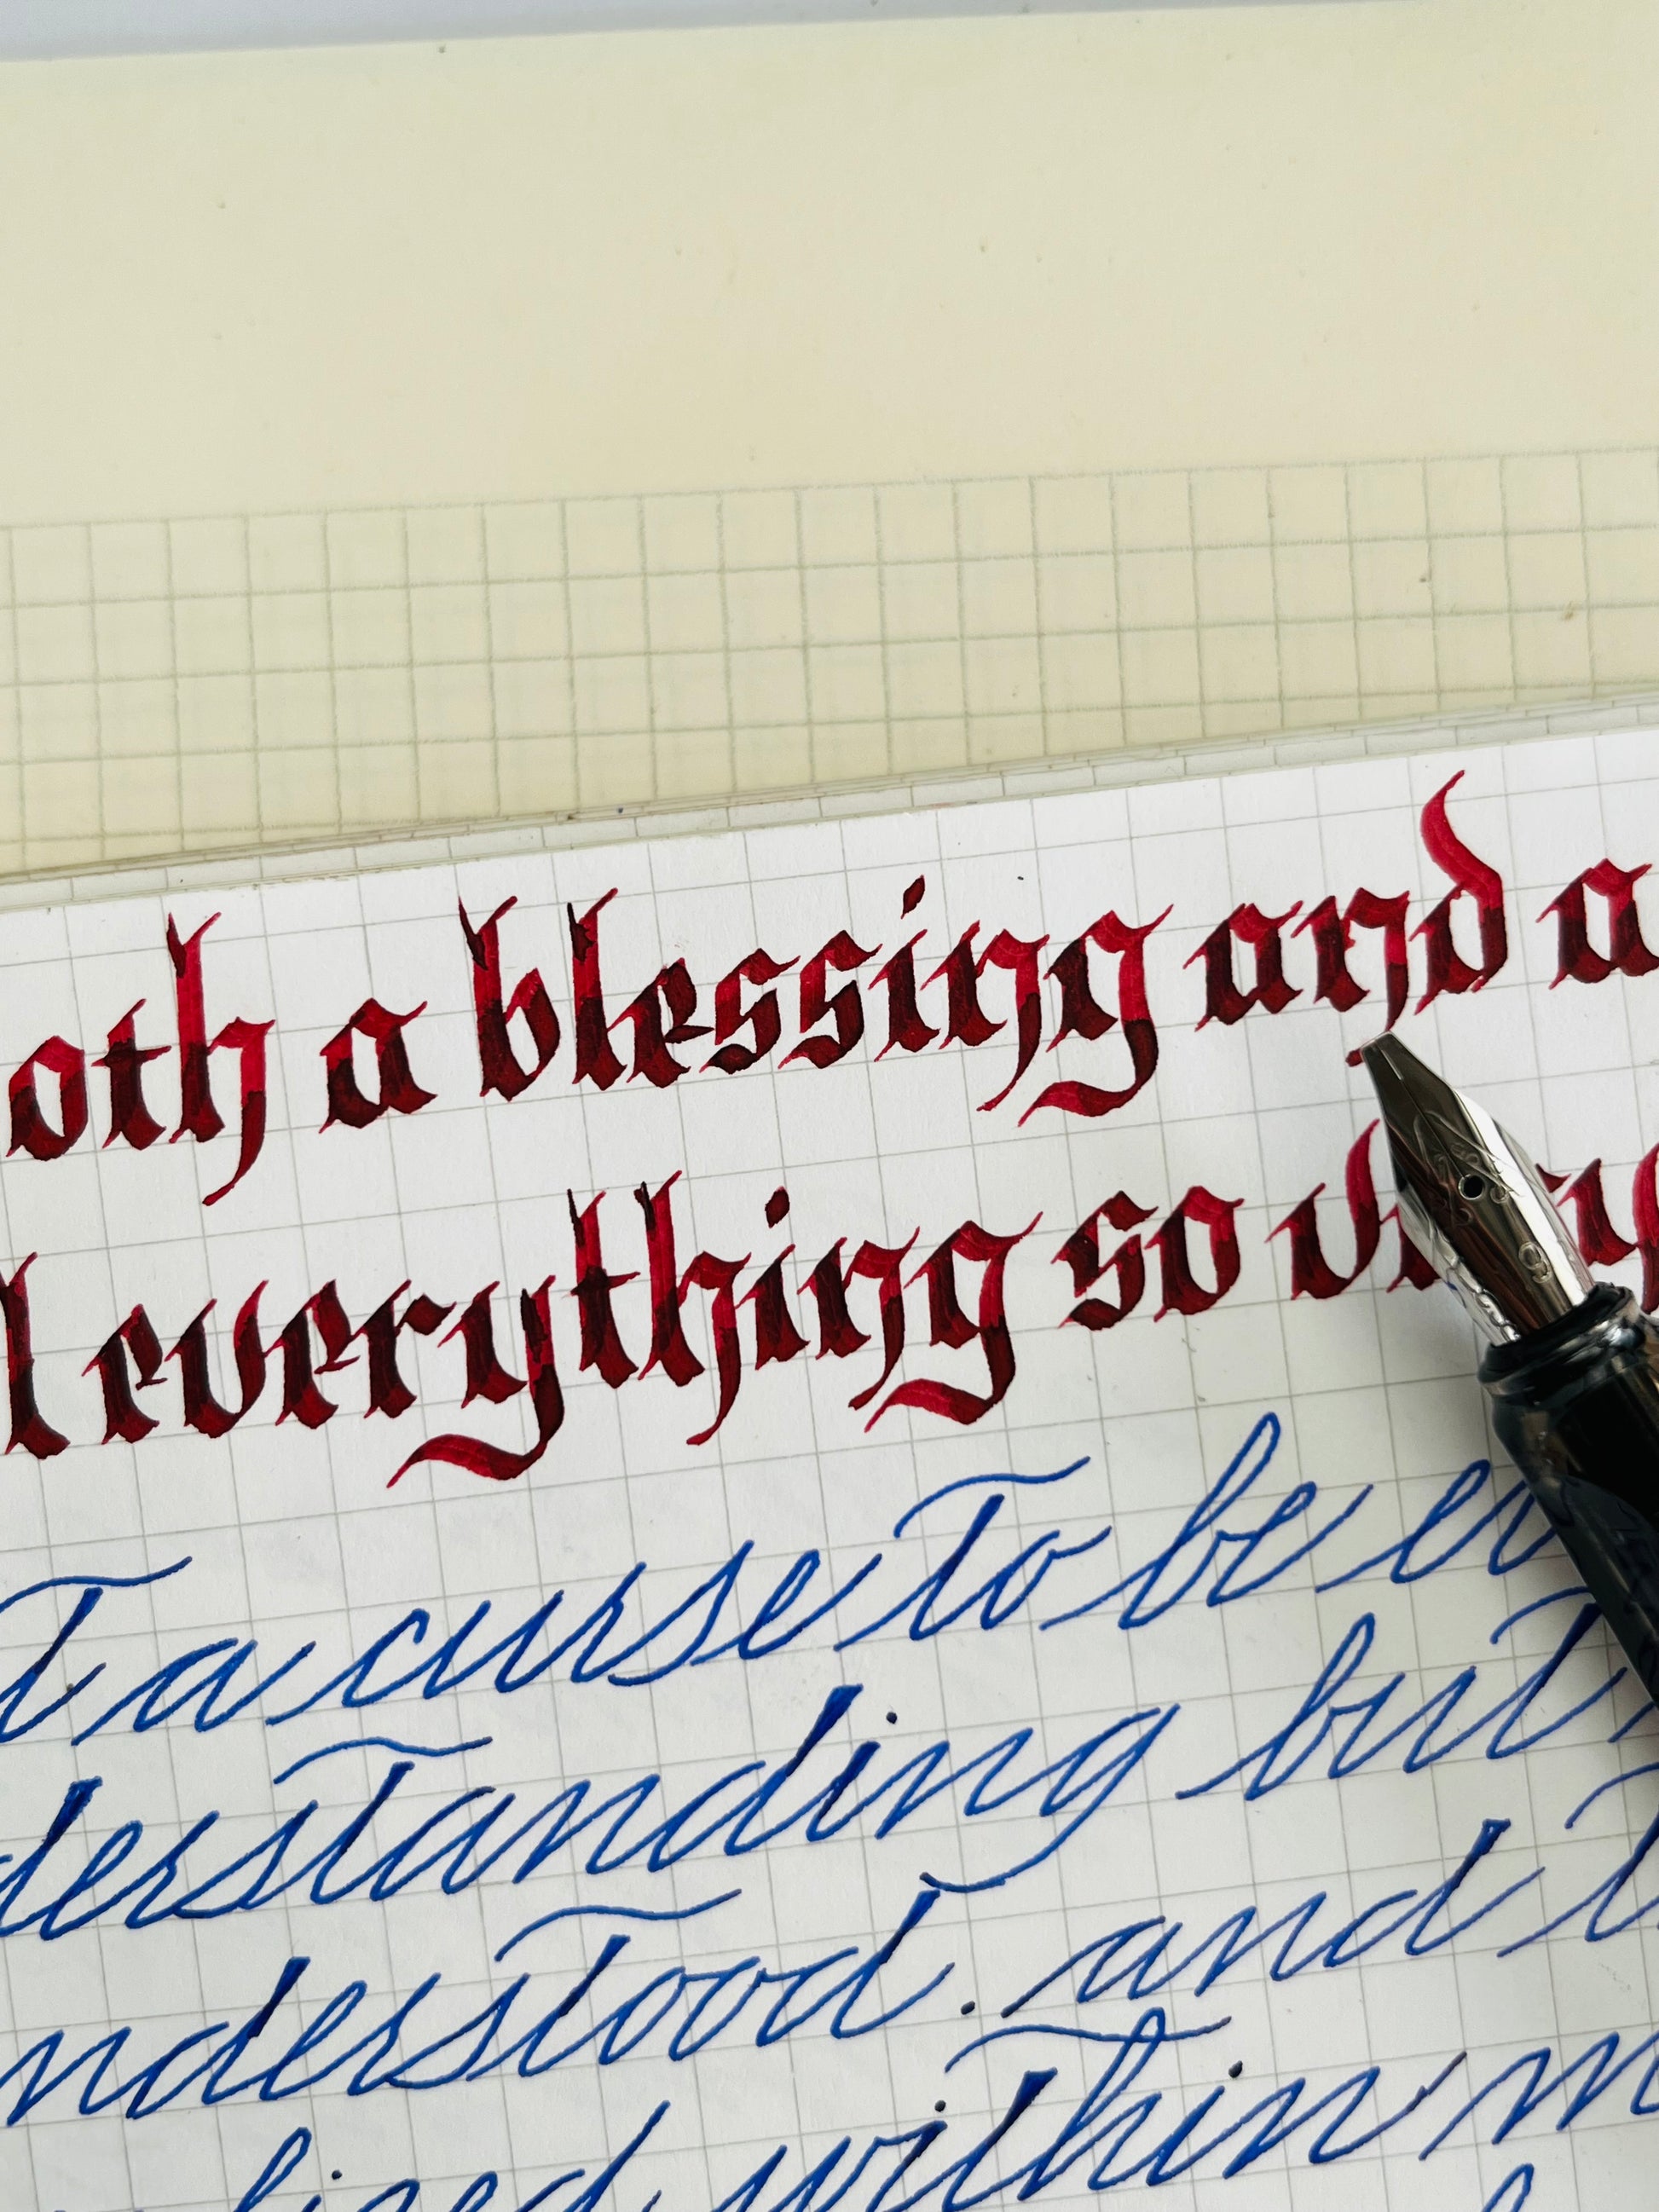 oth a blessing and a
l everything so
T a curse To be
dersTanding buT
ndersTood. and
lized within